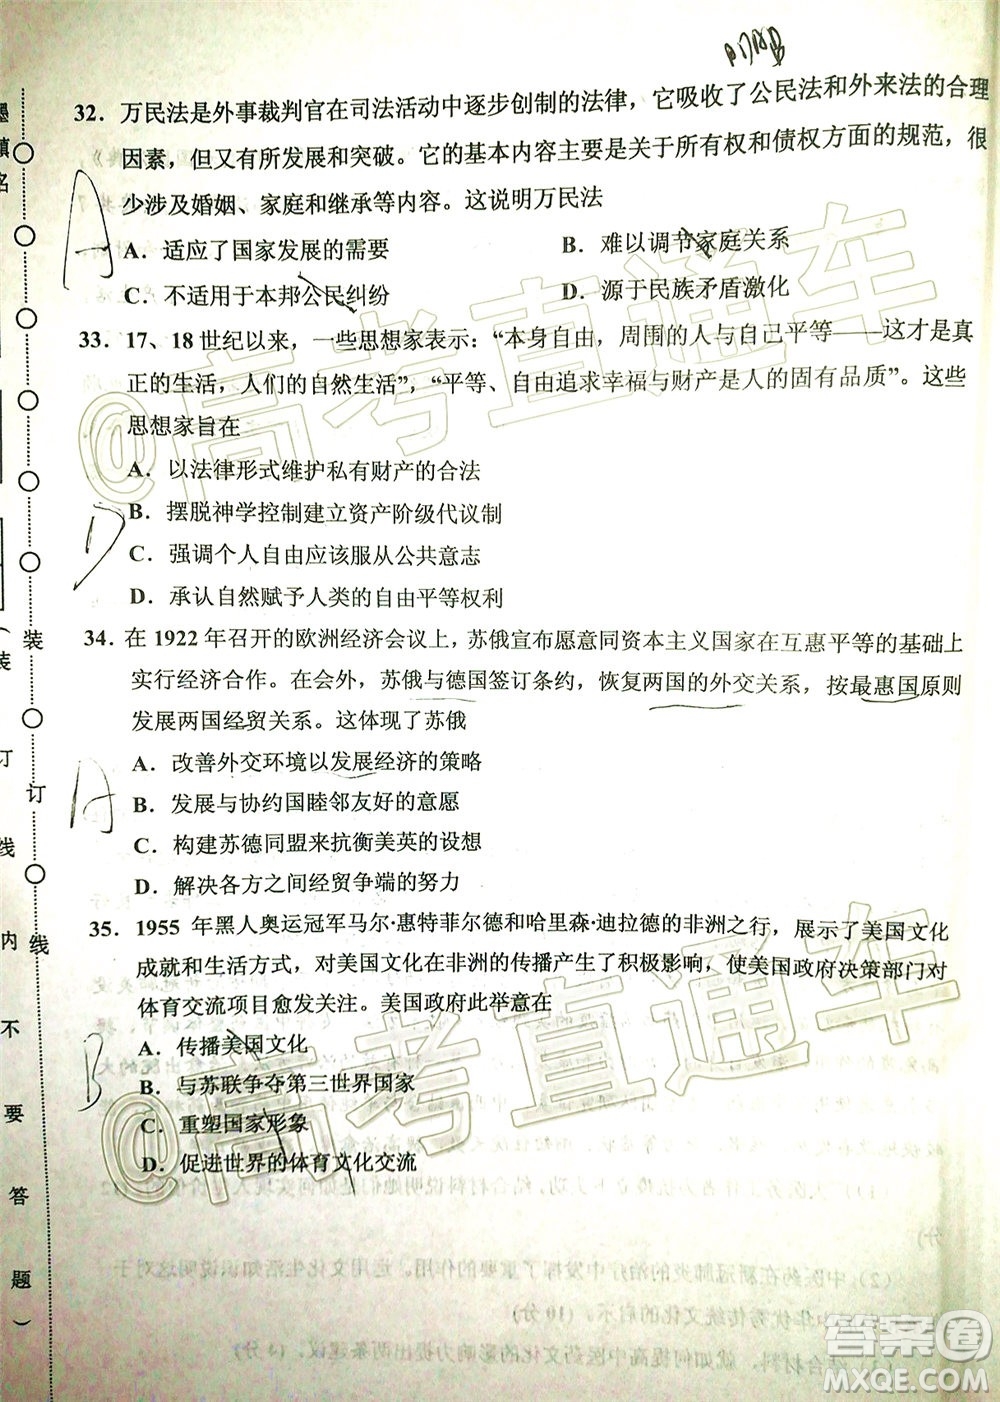 32．万民法是外事裁判官在司法活动中逐步创制的法律，它吸收了公民法和外来法的合理
因素，但又有所发展和突破。它的基本内容主要是关于所有权和债权方面的规范，很
少涉及婚姻、家庭和继承等内容。这说明万民法
A．适应了国家发展的需要
B．难以调节家庭关系
C．不适用于本邦公民纠纷
D．源于民族矛盾激化
33．17、18世纪以来，一些思想家表示：“本身自由，周围的人与自己平等——这才是真
正的生活，人们的自然生活”，“平等、自由追求幸福与财产是人的固有品质”。这些
思想家旨在
A．以法律形式维护私有财产的合法
B．摆脱神学控制建立资产阶级代议制
C．强调个人自由应该服从公共意志
D．承认自然赋予人类的自由平等权利
34．在1922年召开的欧洲经济会议上，苏俄宣布愿意同资本主义国家在互惠平等的基础上
实行经济合作。在会外，苏俄与德国签订条约，恢复两国的外交关系，按最惠国原则
发展两国经贸关系。这体现了苏俄
A．改善外交环境以发展经济的策略
B．发展与协约国睦邻友好的意愿
C．构建苏德同盟来抗衡美英的设想
D．解决各方之间经贸争端的努力
35．1955 年黑人奥运冠军马尔·惠特菲尔德和哈里森·迪拉德的非洲之行，展示了美国文化
成就和生活方式，对美国文化在非洲的传播产生了积极影响，使美国政府决策部门对
体育交流项目愈发关注。美国政府此举意在
A．传播美国文化
B．与苏联争夺第三世界国家
C．重塑国家形象
D．促进世界的体育文化交流
A
D
A
B
装
订
线
内
不
要
答
题
装
订
线
@高考直通车
@高考直通车
答案圈
MXQE.COM